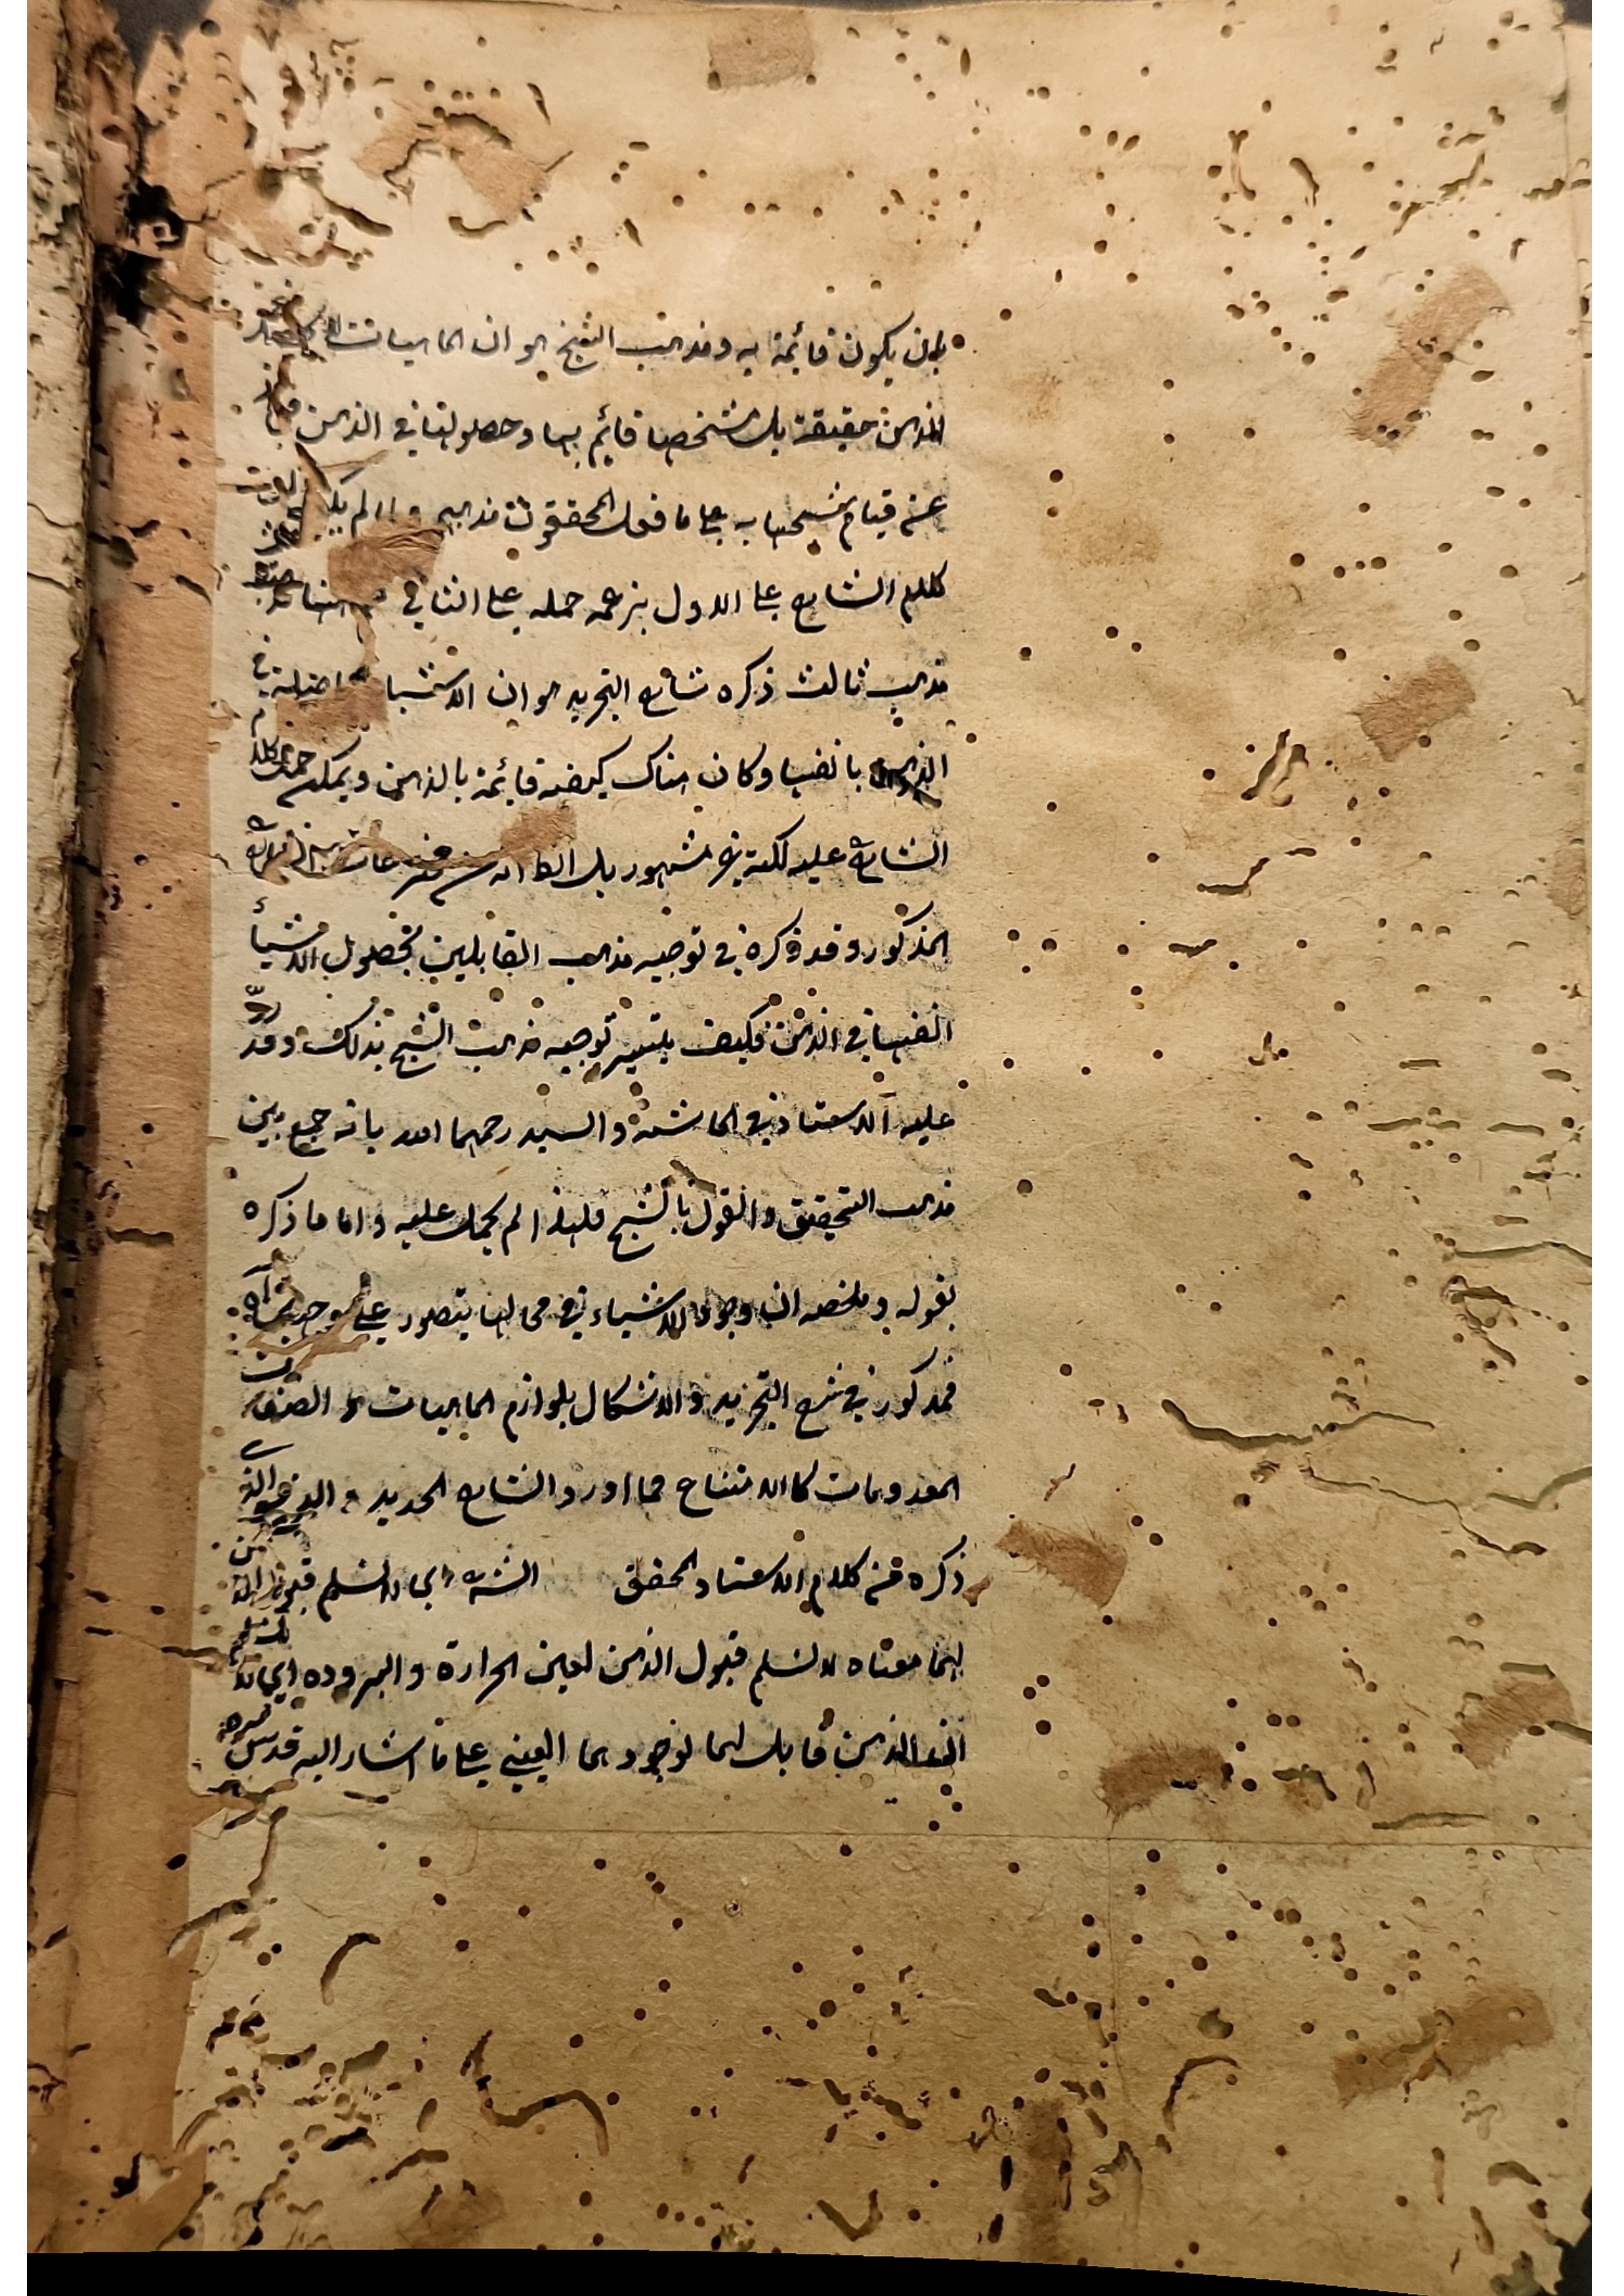 بان يكون قائمة به ومذهب الشيخ هو ان الماهيات
الذهن حقيقة بل مشخصا قايم بها وحصولها في الذهن
عن قيام شبحها به على ما فعل المحققون مذهب
كلام الشارح على الاول بزعمه حمله على الثاني
مذهب ثالث ذكره شارح التجريد هو ان الاشيا حاصلة في
الذهن بانفسها وكان هناك كيفية قائمة بالذهن ويمكن حمل كلام
الشارح عليه لكنه غير مشهور بل
المذكور وقد ذكره في توجيه مذهب القايلين بحصول الاشياء
انفسها في الذهن فكيف يتيسر توجيه مذهب الشبح بذلك وقد ردّ
عليه الاستاذ في الحاشية والسيد رحمهما الله بانه جمع بين
مذهب التحقيق والقول بالشبح فلهذا لم يحمل عليه واما ما ذكره
بقوله وملخصه ان وجود الاشياء في محالها يتصور على
فمذكور في شرح التجريد والاشكال بلوازم الماهيات و الصفات
المعدومات كالامتناع مما اورد الشارح الجديد و
ذكره من كلام الاستاد المحقق الشه اي لا نسلم قبول
لهما معناه لا نسلم قبول الذهن لعين الحرارة والبروده اي لا
ان الذهن قابل لهما لوجودهما العيني على ما اشار اليه قدس سره